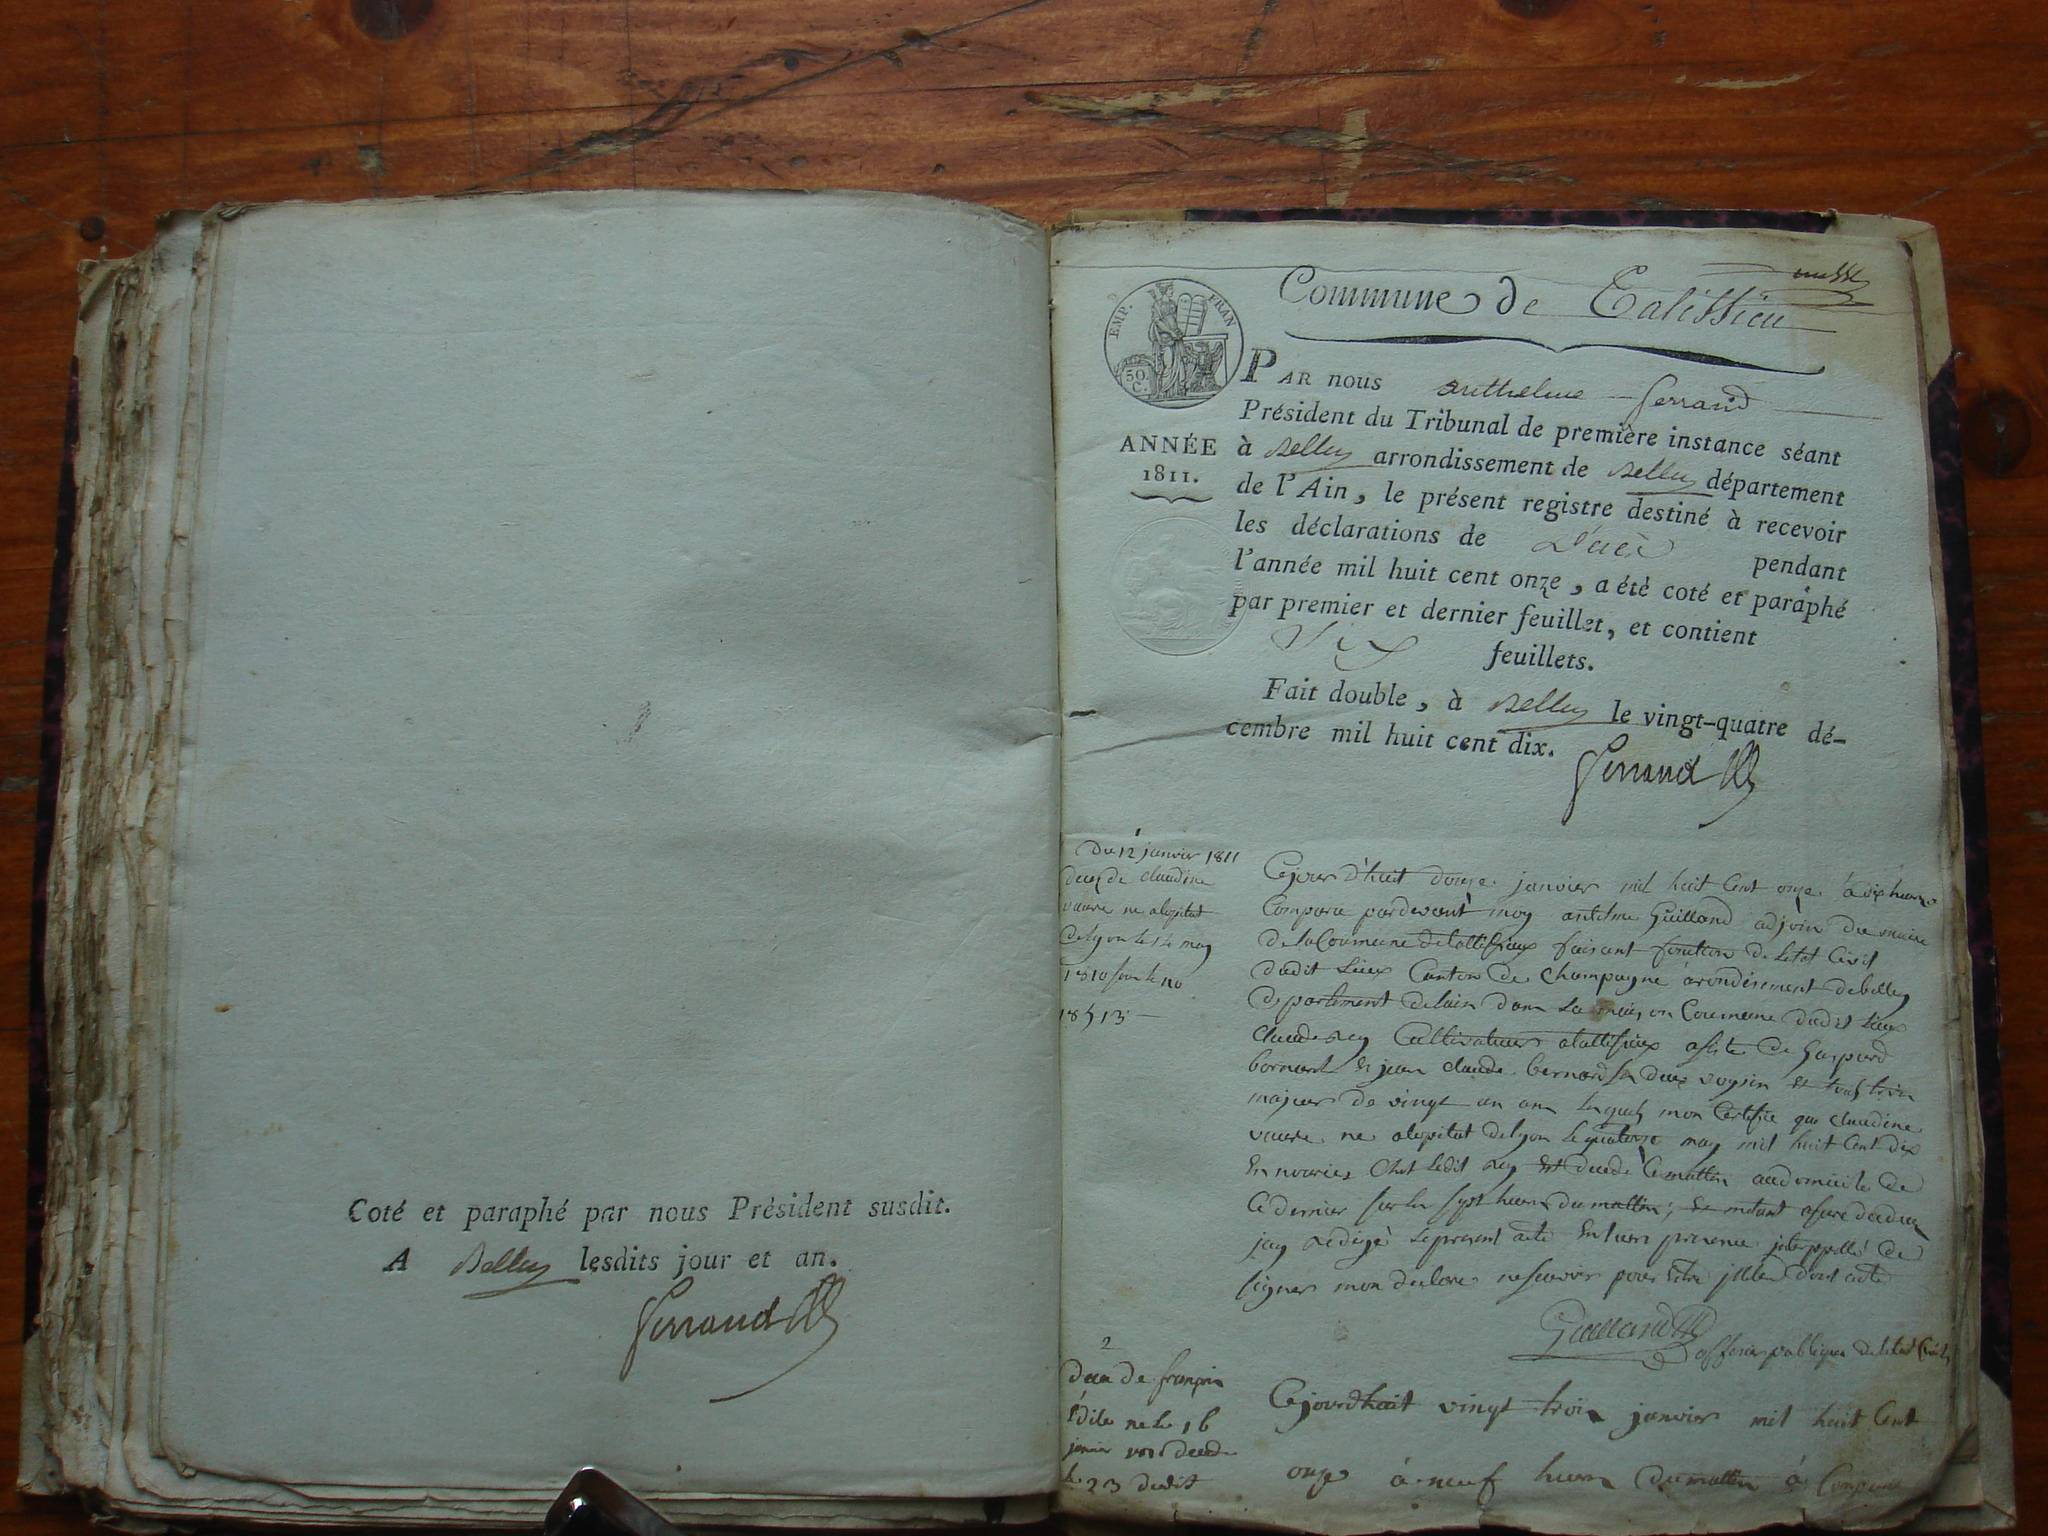 Coté et paraphé par nous Président susdit.
A Belley lesdits jour et an.
Ferrand
Commune de Talissieu
EMP. FRAN
50.
C.
ANNÉE
1811.
PAR nous Anthelme Ferrand
Président du Tribunal de première instance séant
à Belley arrondissement de Belley département
de l'Ain, le présent registre destiné à recevoir
les déclarations de Décès pendant
l'année mil huit cent onze, a été coté et paraphé
par premier et dernier feuillet, et contient
Six feuillets.
Fait double, à Belley le vingt-quatre dé-
cembre mil huit cent dix.
Ferrand
Du 12 janvier 1811
de claudine
vaure ne alopital
Delyon le 14 may
1810 sous le no
Cejourd'huit douze janvier mil huit Cent onze à dix heures
Compara pardevant moy antelme Guilland adjoin du maire
De la Commune detallissieux faisant fonction De letat Civil
dudit Lieux Canton De Champagne arondisement debelley
Departiment delain dans La maison Commune dudit Lieux
Claude Rey Cultivateur atallisieux assiste De Gaspard
bornard Et jean Claude bernard Ses deux voysin Et tous trois
majeurs De vingt un ans Lesquels mon Certifié que Claudine
vaure ne alopital Delyon Le quatorze may mil huit Cent dix
En Chet Ledit Rey Est decede Ce mattin audomicile De
Ce dernier sur les sept heures du mattin; Et metant assure dudeces
jay Redigé Lepresent acte En leurs presence jnterppellé De
signer mon declare ne scavoir pour Estre jlletere dont acte
Guilland
officier publique De letat Civil
2
De françois
ne le 16
janvier decede
le 23 dudit
Cejourdhuit vingt trois janvier mil huit Cent
onze à neuf heures Du mattin à Comparu